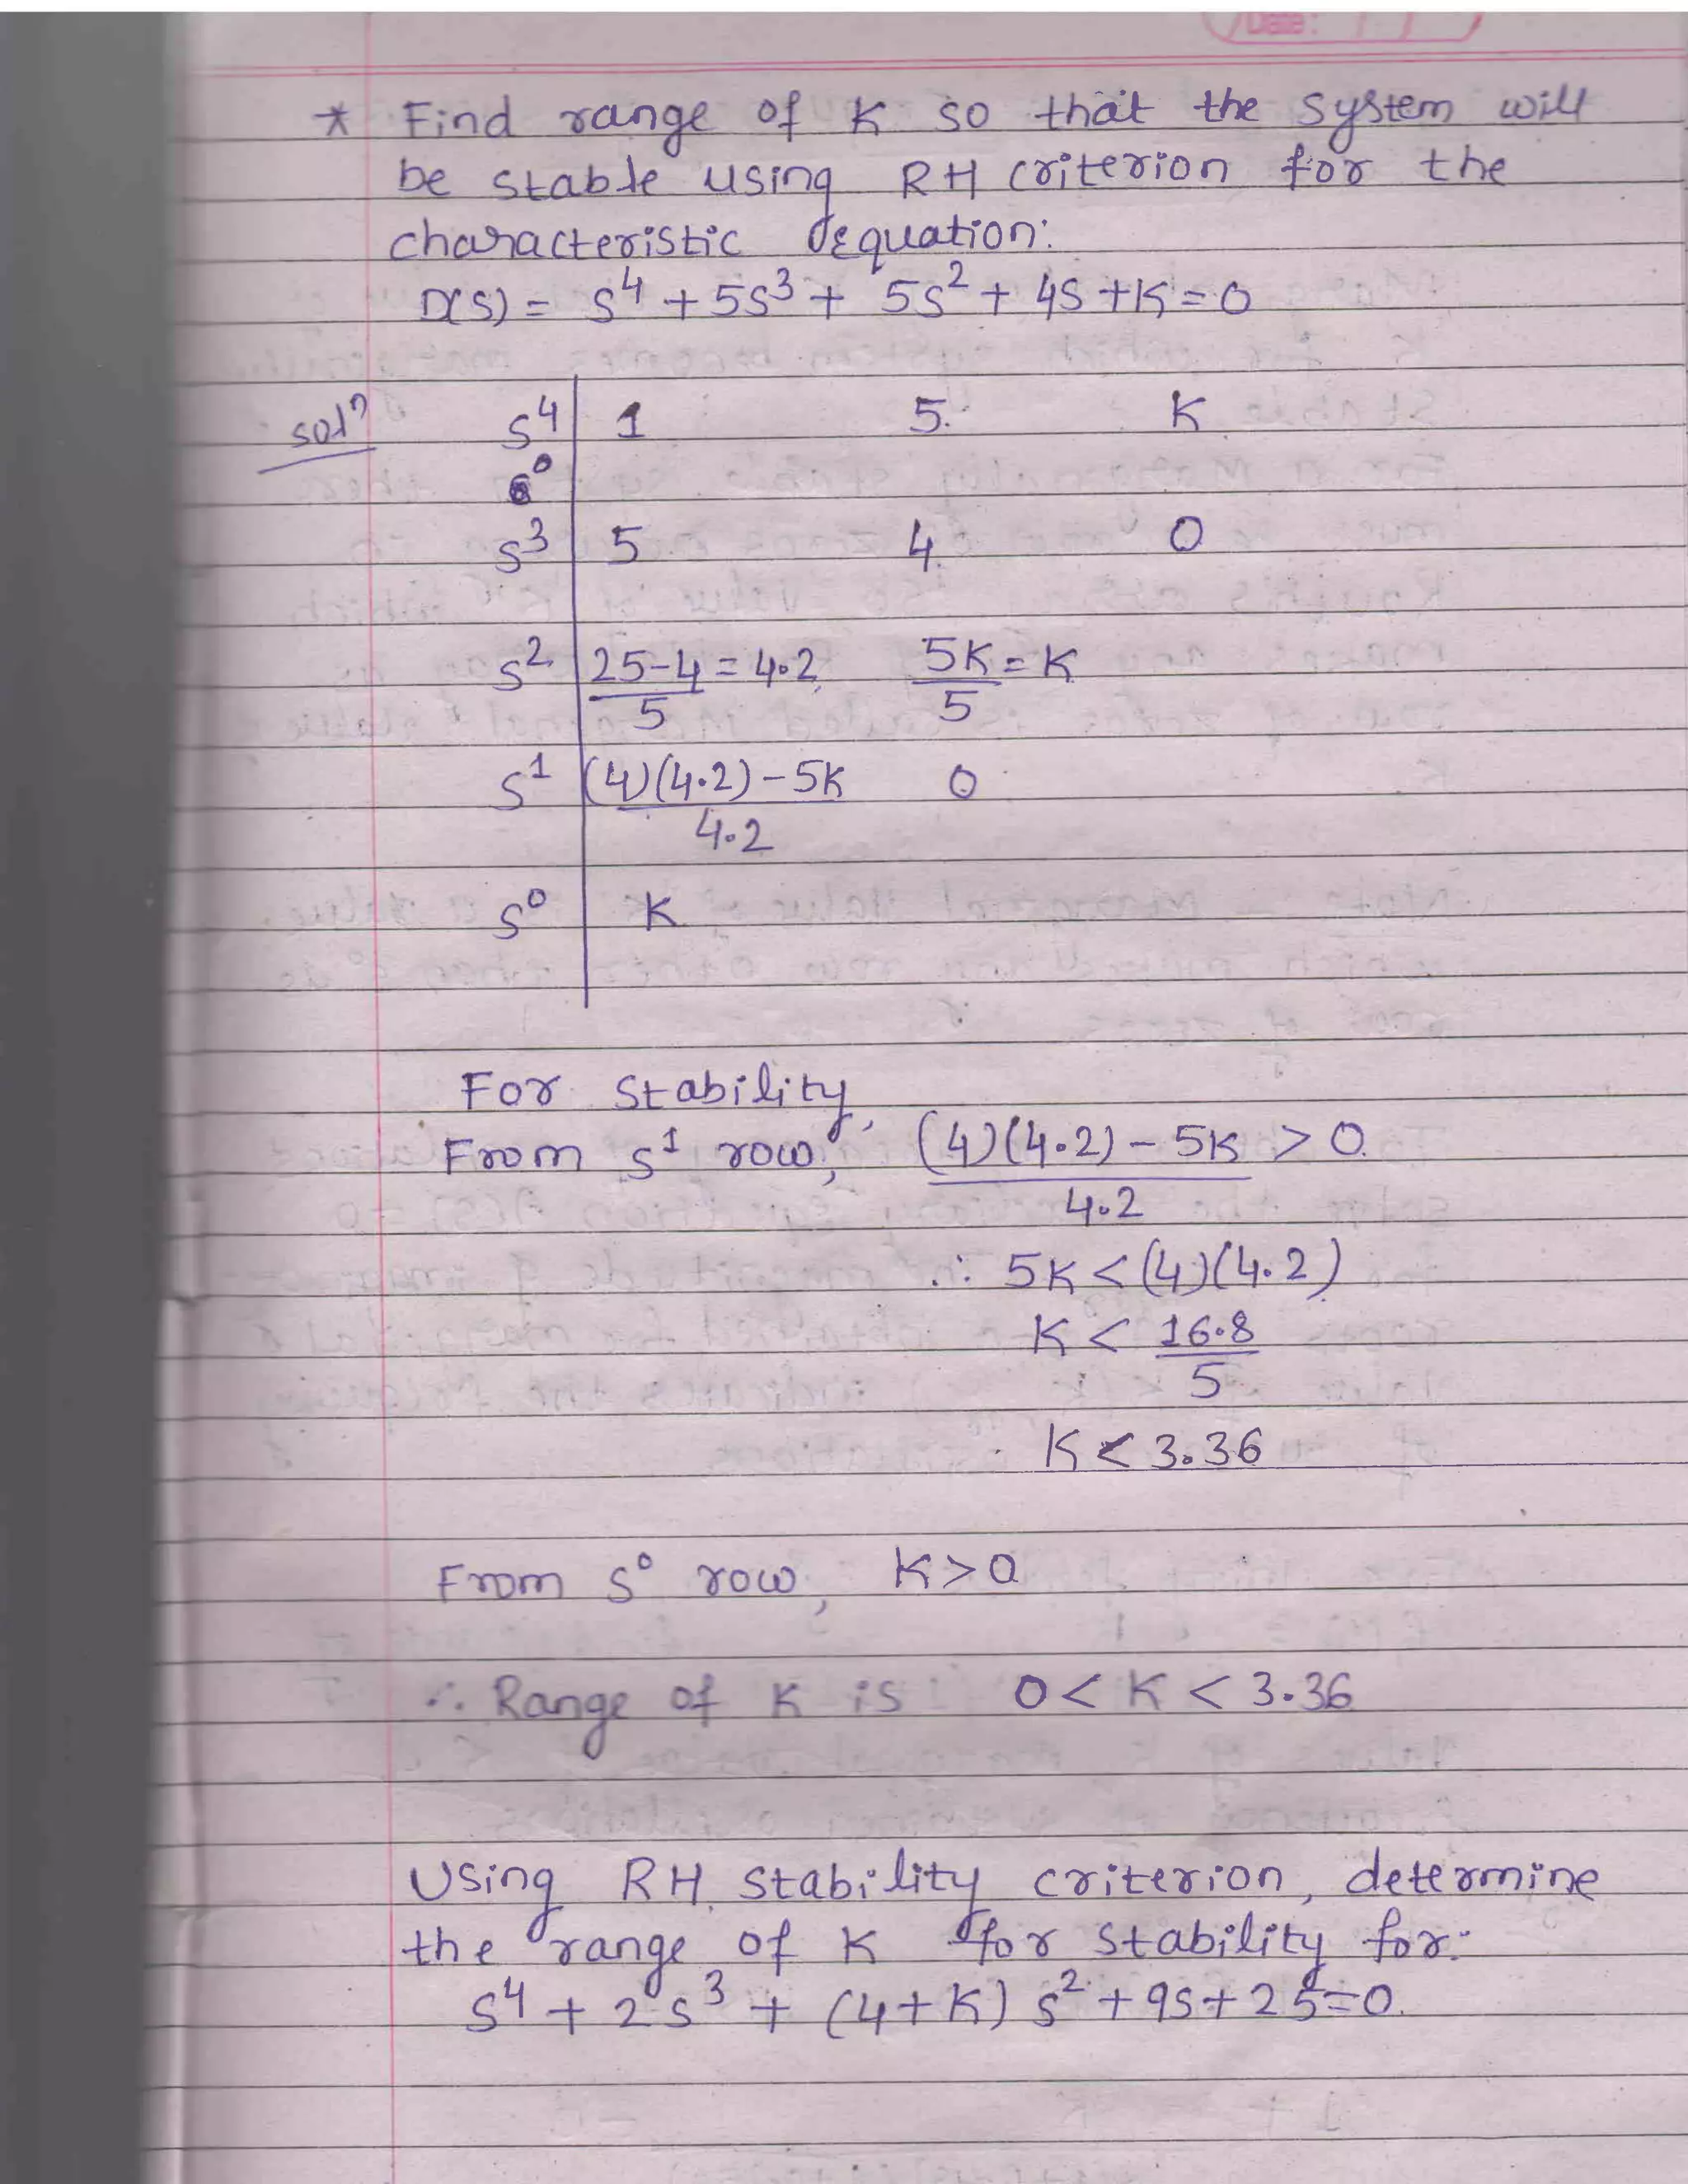 Date:
* Find range of K so that the system will
be stable using RH criterion for the
characteristic equation:
D(S) = S⁴ + 5S³ + 5S² + 4S + K = 0
solⁿ S⁴ 1 5 K
S³ 5 4 0
S² 25-4/5 = 4.2 5K/5 = K
S¹ (4)(4.2) - 5K/4.2 0
S⁰ K
For Stability,
From S¹ row, (4)(4.2) - 5K/4.2 > 0
∴ 5K < (4)(4.2)
K < 16.8/5
K < 3.36
From S⁰ row, K > 0
∴ Range of K is 0 < K < 3.36
Using RH stability criterion, determine
the range of K for stability for:
S⁴ + 2S³ + (4+K) S² + 9S + 25 = 0